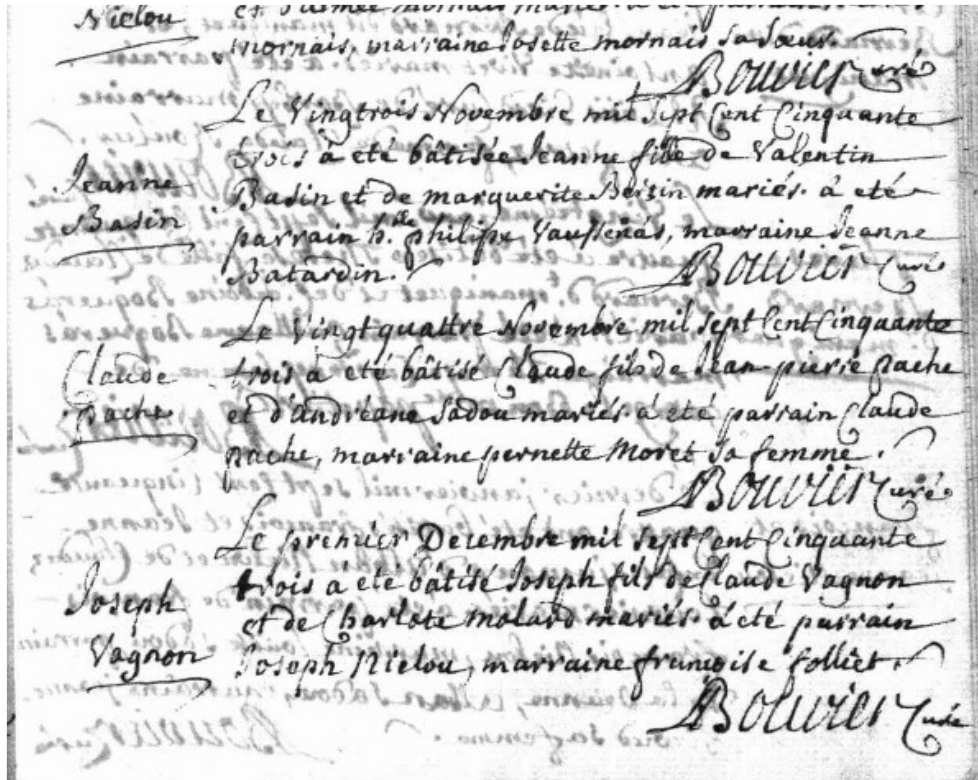 Nielou
mornais, marraine Josette mornais sa sœur.
Bouvier Curé
Le Vingtrois Novembre mil sept Cent Cinquante
trois à eté bâtisée Jeanne fille de Valentin
Jeanne
Basin
Basin et de marguerite Bersin mariés. à eté
parrain h.ble philipe Vaussenás, marraine Jeanne
Batardin.
Bouvier Curé
Le Vingt quattre Novembre mil sept Cent Cinquante
Claude
pache
trois à eté bâtisé Claude fils de Jean pierre pache
et d'andréane Sadou mariés. à eté parrain Claude
pache, marraine pernette Moret sa femme.
Bouvier Curé
Le premier Decembre mil sept Cent Cinquante
Joseph
Vagnon
trois à eté bâtisé Joseph fils de Claude Vagnon
et de Charlote molard mariés. à eté parrain
Joseph Nielou, marraine françoise folliet
Bouvier Curé